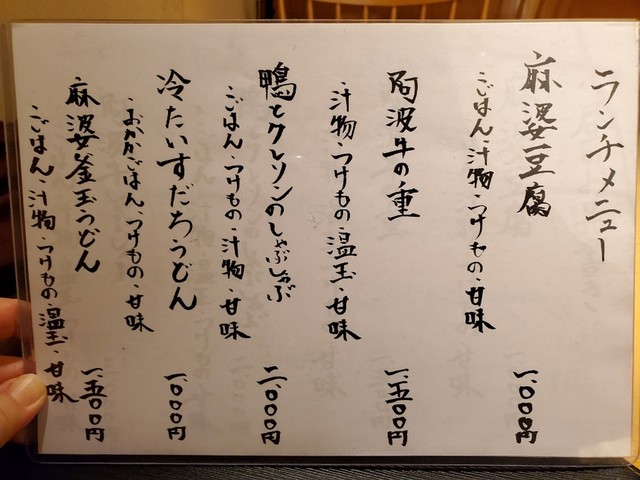 ランチメニュー
麻婆豆腐 一、〇〇〇円
・ごはん・汁物・つけもの・甘味
阿波牛の重 一、五〇〇円
・汁物・つけもの・温玉・甘味
鴨とクレソンのしゃぶしゃぶ 二、〇〇〇円
・ごはん・つけもの・汁物・甘味
冷たいすだちうどん 一、〇〇〇円
・おかかごはん・つけもの・甘味
麻婆釜玉うどん 一、五〇〇円
・ごはん・汁物・つけもの・温玉・甘味